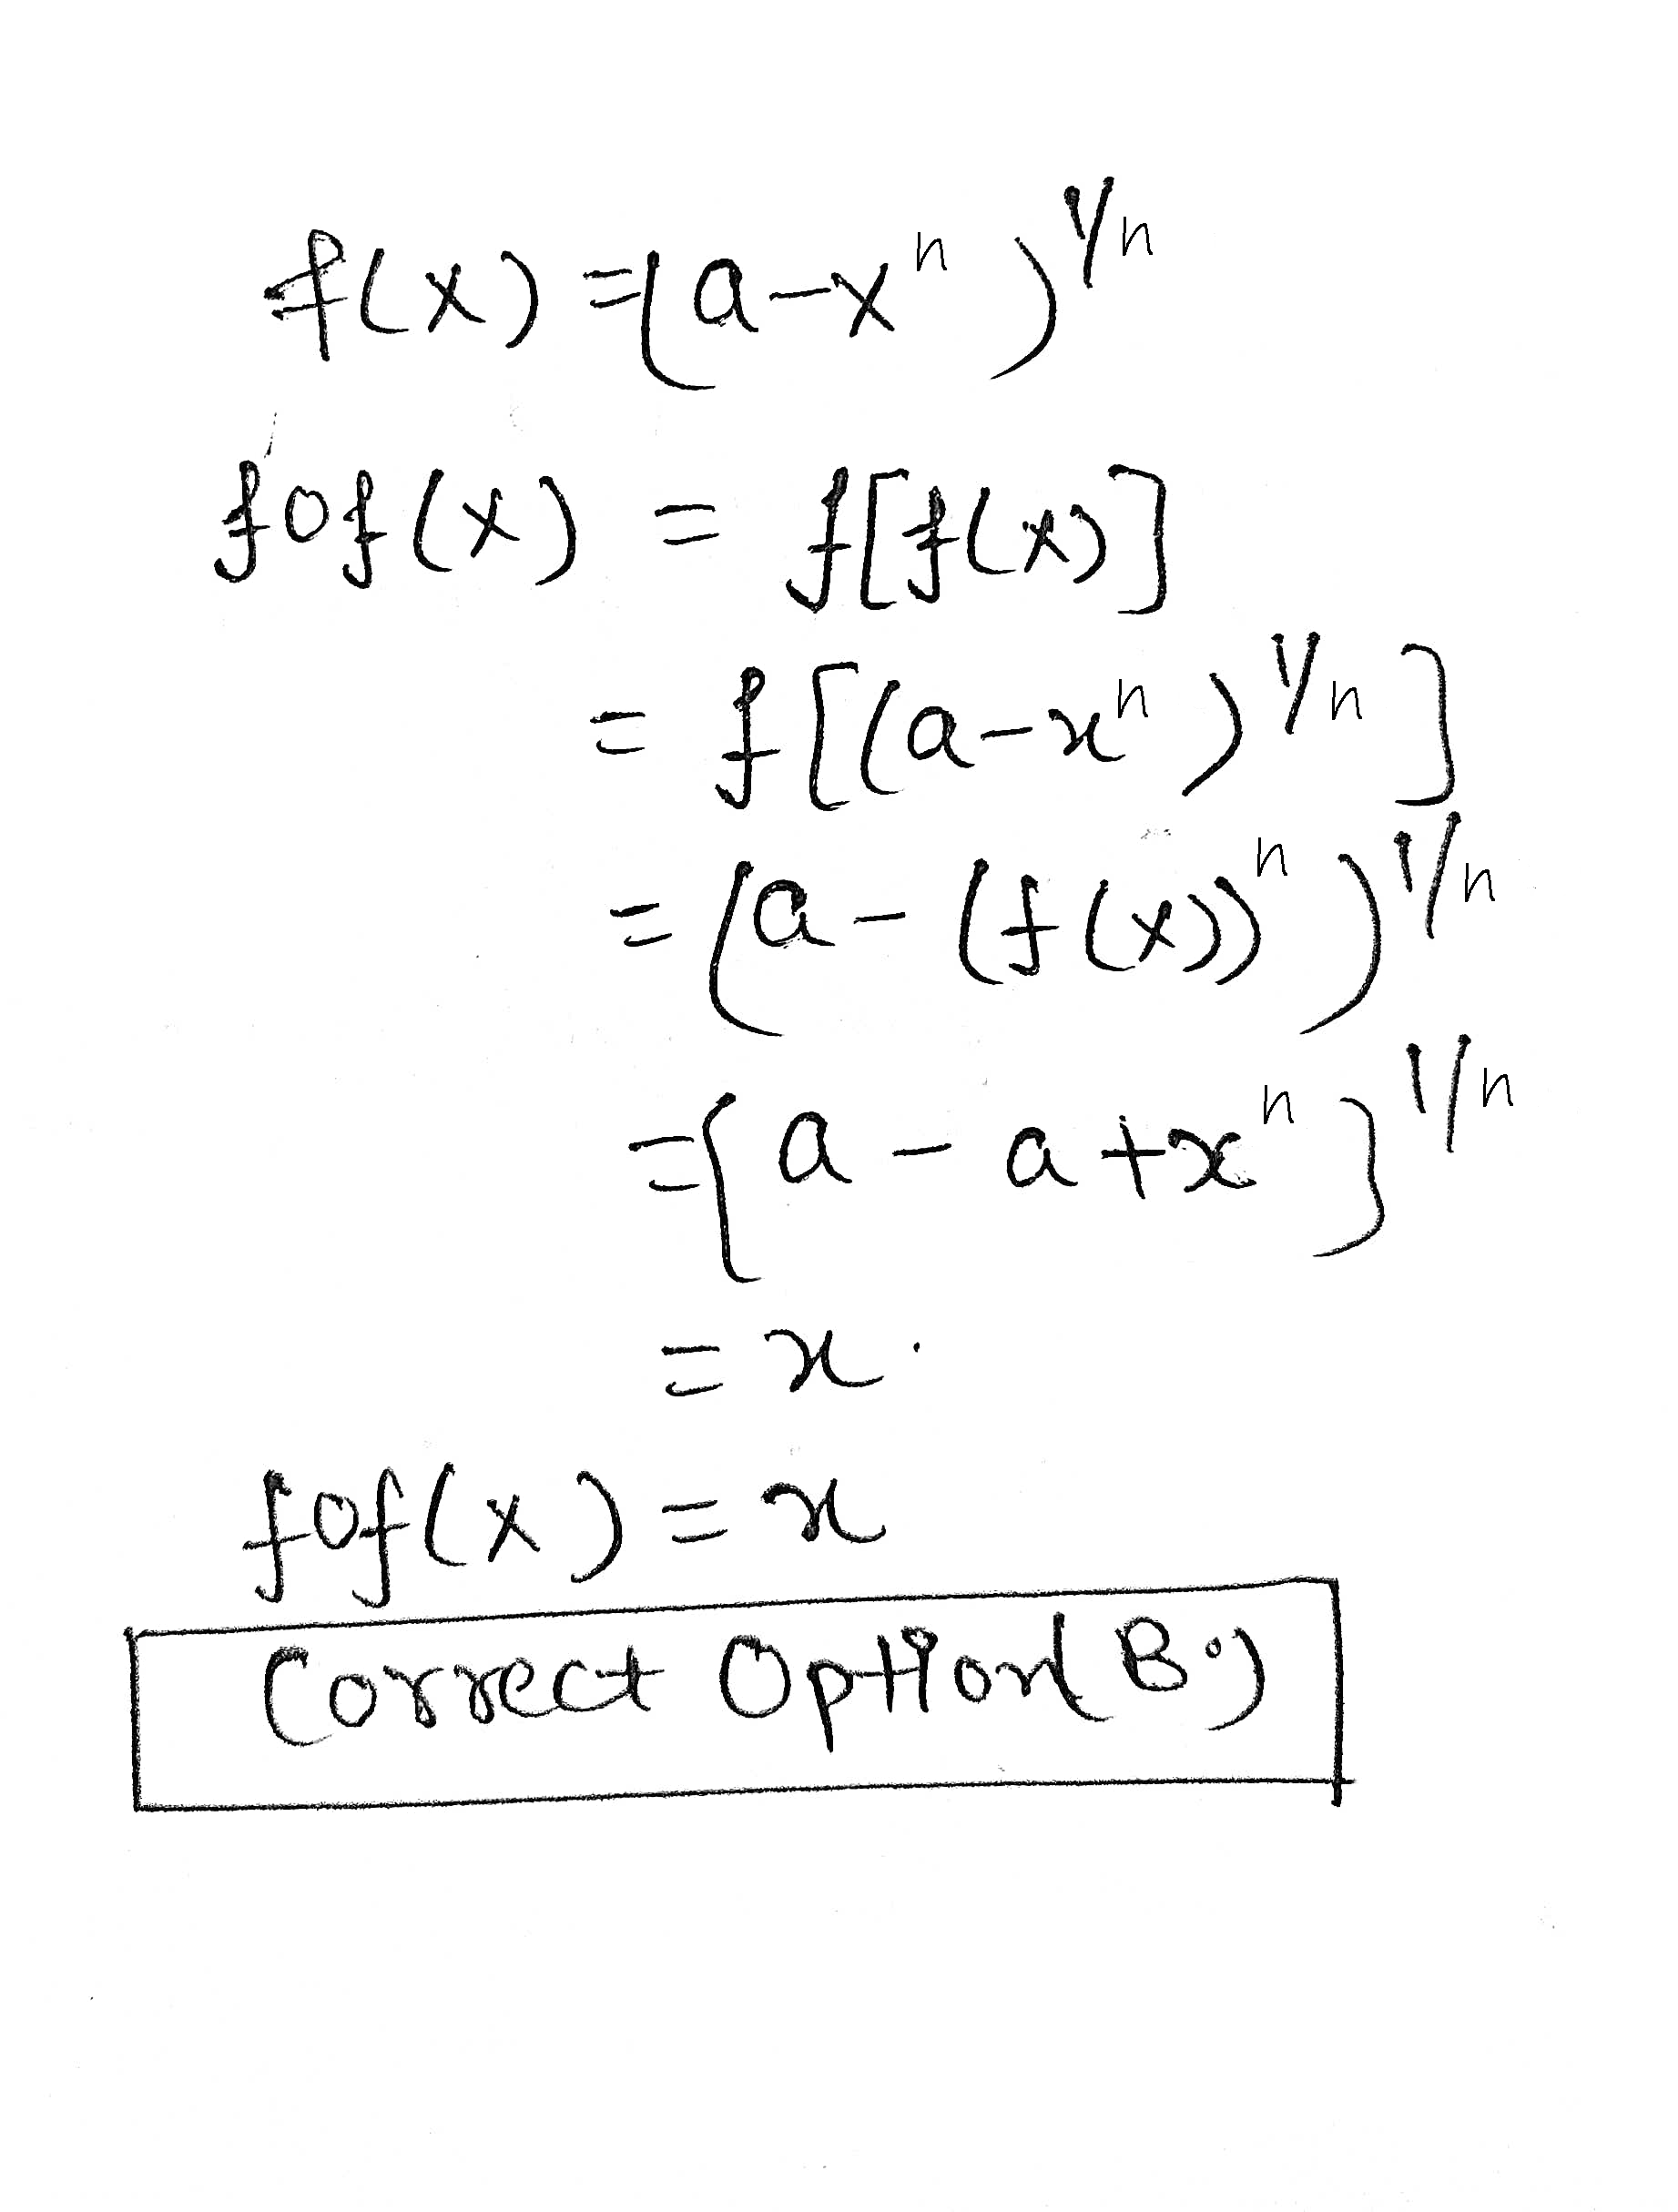 f(x) = (a-x^n)^1/n
fof(x) = f[f(x)]
= f[(a-x^n)^1/n]
= (a - (f(x))^n)^1/n
= {a - a + x^n}^1/n
= x.
fof(x) = x
Correct Option (B.)